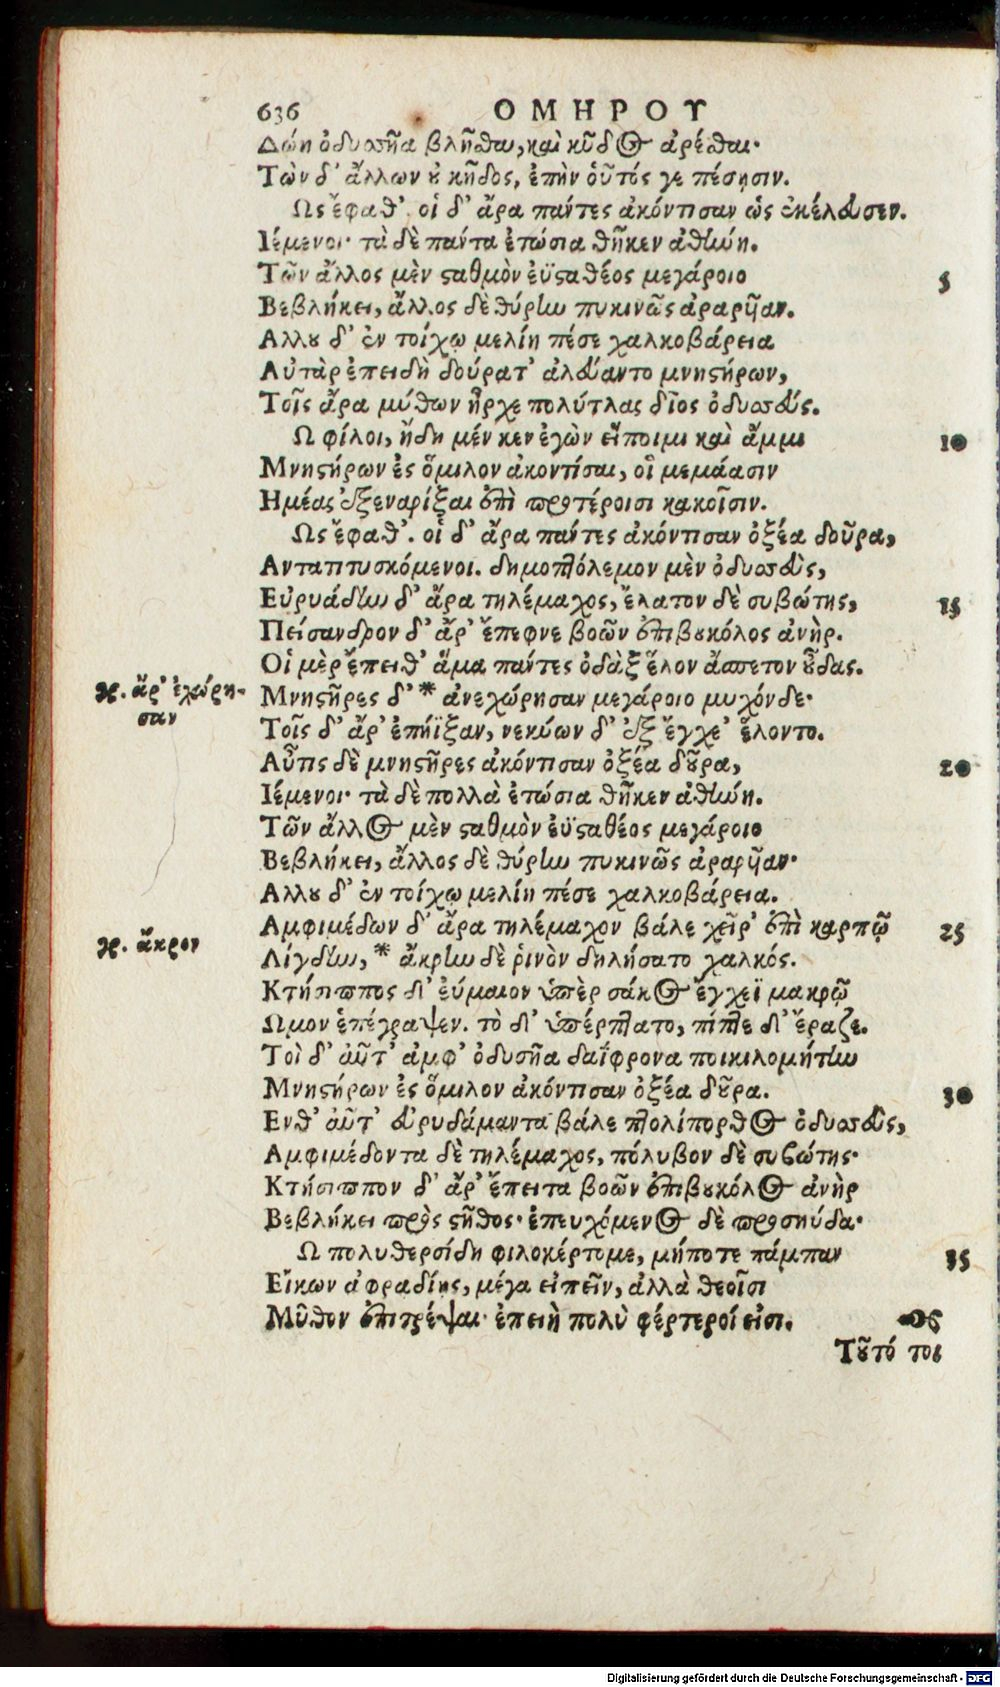 636 ΟΜΗΡΟΥ
Δώη ὀδυσσῆα βλῆσθαι, καὶ κῦδος ἀρέσθαι·
Τῶν δ' ἄλλων ȣ κῆδος, ἐπὴν ὁῦτός γε πέσησιν.
Ως ἔφαθ'. οἱ δ' ἄρα παύτες ἀκόντισαν ὡς ἐκέλευσεν.
Ιέμενοι· τὰ δὲ παύτα ἐτώσια θῆκεν ἀθίωη.
Τῶν ἄλλος μὲν ςαθμὸν ἐϋςαθέος μεγάροιο 5
Βεβλήκει, ἄλλος δὲ θύρίω πυκινῶς ἀραρῆαν.
Αλλȣ δ' ἐν τοίχῳ μελίη πέσε χαλκοβάρεια
Αὐτὰρ ἐπειδὴ δούρατ' ἀλεύαντο μνηςήρων,
Τοῖς ἄρα μύθων ἦρχε πολύτλας δῖος ὀδυσσεύς.
Ω φίλοι, ἤδη μέν κεν ἐγὼν εἴποιμι καὶ ἄμμι 10
Μνηςήρων ἐς ὅμιλον ἀκοντίσαι, οἳ μεμάασιν
Ημέας ἐξεναρίξαι ἐπὶ προτέροισι κακοῖσιν.
Ως ἔφαθ'. οἱ δ' ἄρα παύτες ἀκόντισαν ὀξέα δοῦρα,
Αντα πτυσκόμενοι. δημοπτόλεμον μὲν ὀδυσσεὺς,
Εὐρυάδίω δ' ἄρα τηλέμαχος, ἔλατον δὲ συβώτης, 15
Πείσανδρον δ' ἄρ' ἔπεφνε βοῶν ἐπιβȣκόλος ἀνὴρ.
Οἱ μὲρ ἔπειθ' ἅμα παύτες ὀδὰξ ἕλον ἄσπετον ȣ̃δας.
γρ. ἄρ' ἐχώρησαν
Μνηςῆρες δ' * ἀνεχώρησαν μεγάροιο μυχόνδε·
Τοῖς δ' ἄρ' ἐπήϊξαν, νεκύων δ' ἐξ ἔγχε' ἕλοντο.
Αὖτις δὲ μνηςῆρες ἀκόντισαν ὀξέα δȣ̃ρα, 20
Ιέμενοι· τὰ δὲ πολλὰ ἐτώσια θῆκεν ἀθίωη.
Τῶν ἄλλος μὲν ςαθμὸν ἐϋςαθέος μεγάροιο
Βεβλήκει, ἄλλος δὲ θύρίω πυκινῶς ἀραρῆαν·
Αλλȣ δ' ἐν τοίχῳ μελίη πέσε χαλκοβάρεια.
Αμφιμέδων δ' ἄρα τηλέμαχον βάλε χεῖρ' ἐπὶ καρπῷ 25
γρ. ἄκρον
Λίγδίω, * ἄκρίω δὲ ῥινὸν δηλήσατο χαλκός.
Κτήσιππος δ' εὔμαιον ὑπὲρ σάκος ἔγχεϊ μακρῷ
Ωμον ἐπέγραψεν. τὸ δ' ὑπέρπτατο, πίπτε δ' ἔραζε.
Τοὶ δ' αὖτ' ἀμφ' ὀδυσῆα δαΐφρονα ποικιλομήτίω
Μνηςήρων ἐς ὅμιλον ἀκόντισαν ὀξέα δȣ̃ρα. 30
Ενθ' αὖτ' εὐρυδάμαντα βάλε πτολίπορθος ὀδυσσεὺς,
Αμφιμέδοντα δὲ τηλέμαχος, πόλυβον δὲ συβώτης·
Κτήσιππον δ' ἄρ' ἔπειτα βοῶν ἐπιβȣκόλος ἀνὴρ
Βεβλήκει πρὸς ςῆθος· ἐπευχόμενος δὲ προσηύδα·
Ω πολυθερσίδη φιλοκέρτομε, μήποτε πάμπαν 35
Εἴκων ἀφραδίης, μέγα εἰπεῖν, ἀλλὰ θεοῖσι
Μῦθον ἐπιτρέψαι· ἐπειὴ πολὺ φέρτεροί εἰσι.
Τȣ̃τό τοι
Digitalisierung gefördert durch die Deutsche Forschungsgemeinschaft - DFG